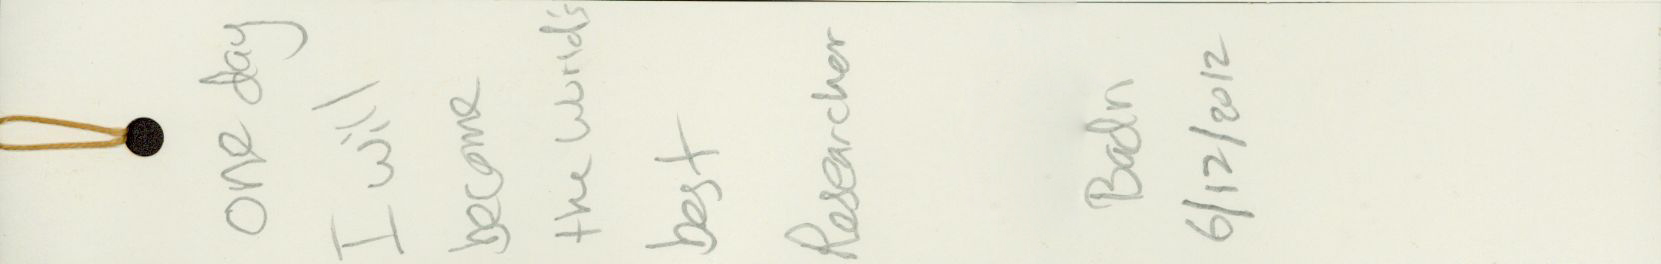 One day
I will
become
the world's
best
Researcher
6/12/2012